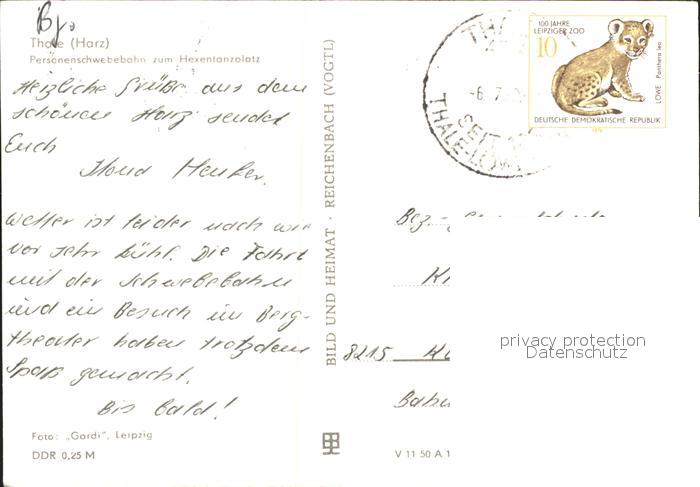 Thale (Harz)
Personenschwebebahn zum Hexentanzplatz
Herzliche Grüße aus dem
schönen Harz sendet
Euch
Wetter ist leider nach wie
vor sehr kühl. Die Fahrt
mit der Schwebebahn
und ein Besuch im Berg-
theater haben trotzdem
Spaß gemacht.
Bis bald!
Foto: „Gardi", Leipzig
DDR 0,25 M
BILD UND HEIMAT · REICHENBACH (VOGTL)
V 11 50 A 1
100 JAHRE
LEIPZIGER ZOO
10
LÖWE Panthera leo
DEUTSCHE DEMOKRATISCHE REPUBLIK
1978
SEIT
THALE
Bez.-
8215
privacy protection
Datenschutz